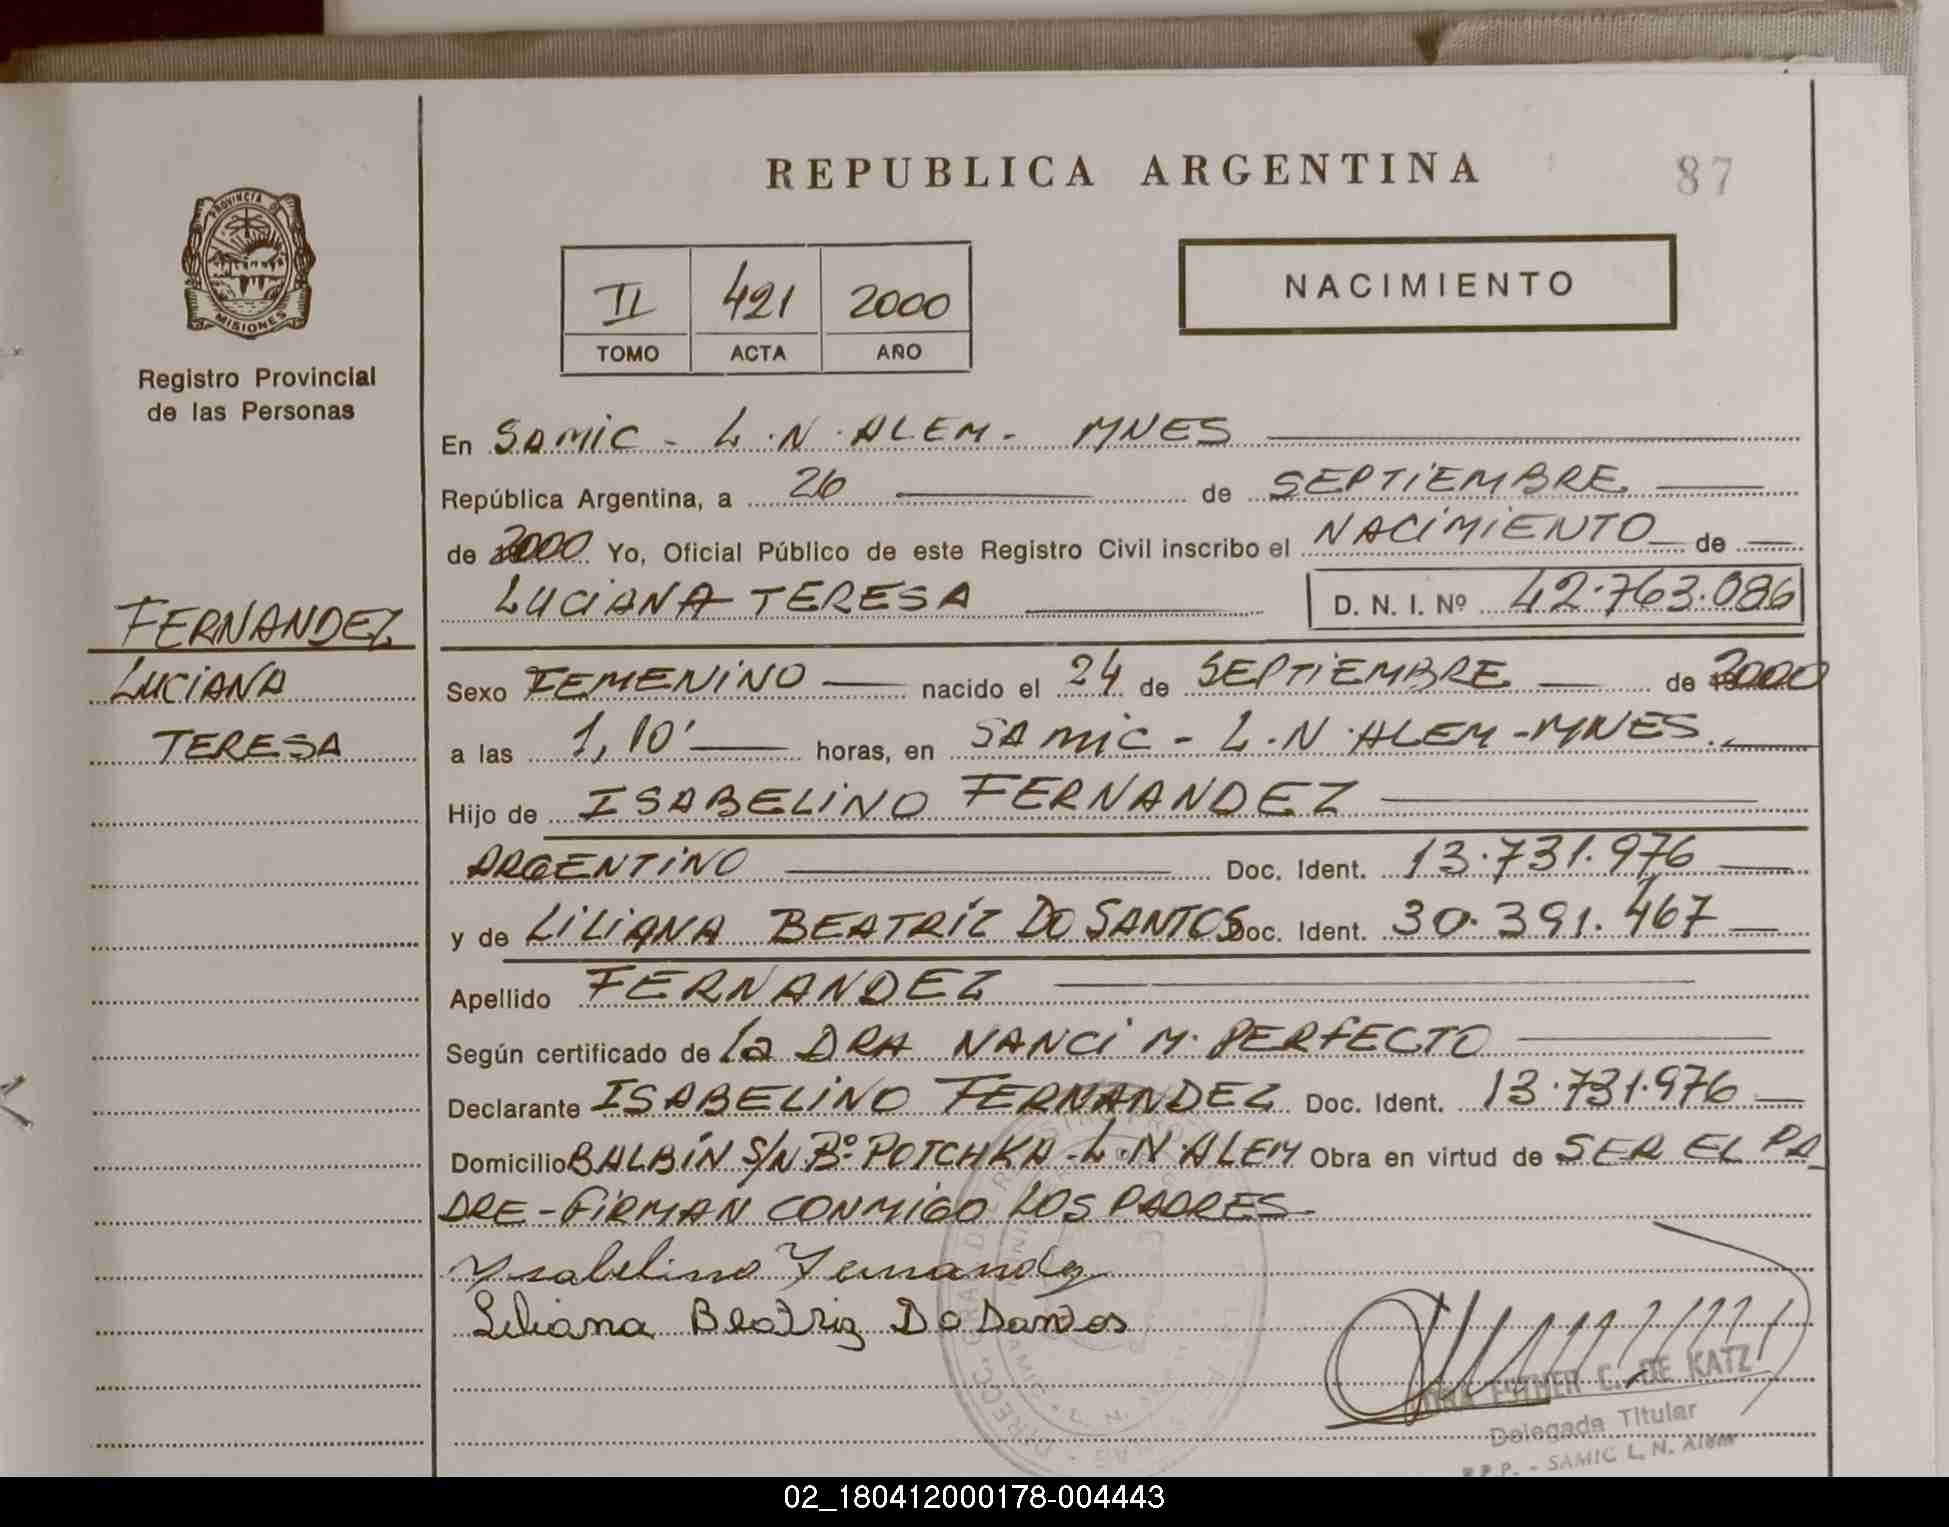 REPUBLICA ARGENTINA
87
PROVINCIA DE
MISIONES
Registro Provincial
de las Personas
II 421 2000
TOMO ACTA AÑO
NACIMIENTO
En SAMIC - L.N.ALEM - MNES
República Argentina, a 26 de SEPTIEMBRE
de 2000 Yo, Oficial Público de este Registro Civil inscribo el NACIMIENTO de
LUCIANA TERESA D. N. I. Nº 42.763.086
FERNANDEZ
LUCIANA
TERESA
Sexo FEMENINO nacido el 24 de SEPTIEMBRE de 2000
a las 1,10' horas, en SAMIC - L.N.ALEM-MNES.
Hijo de ISABELINO FERNANDEZ
ARGENTINO Doc. Ident. 13.731.976
y de LILIANA BEATRIZ DO SANTOS Doc. Ident. 30.391.467
Apellido FERNANDEZ
Según certificado de la DRA NANCI M. PERFECTO
Declarante ISABELINO FERNANDEZ Doc. Ident. 13.731.976
Domicilio BALBIN S/N Bº POTCHKA - L.N.ALEM Obra en virtud de SER EL PA
DRE - FIRMAN CONMIGO LOS PADRES
Ysabelino Fernandez
Liliana Beatriz Do Santos
ESTHER C. DE KATZ
Delegada Titular
R.P.P. - SAMIC L. N. Alem
02_180412000178-004443